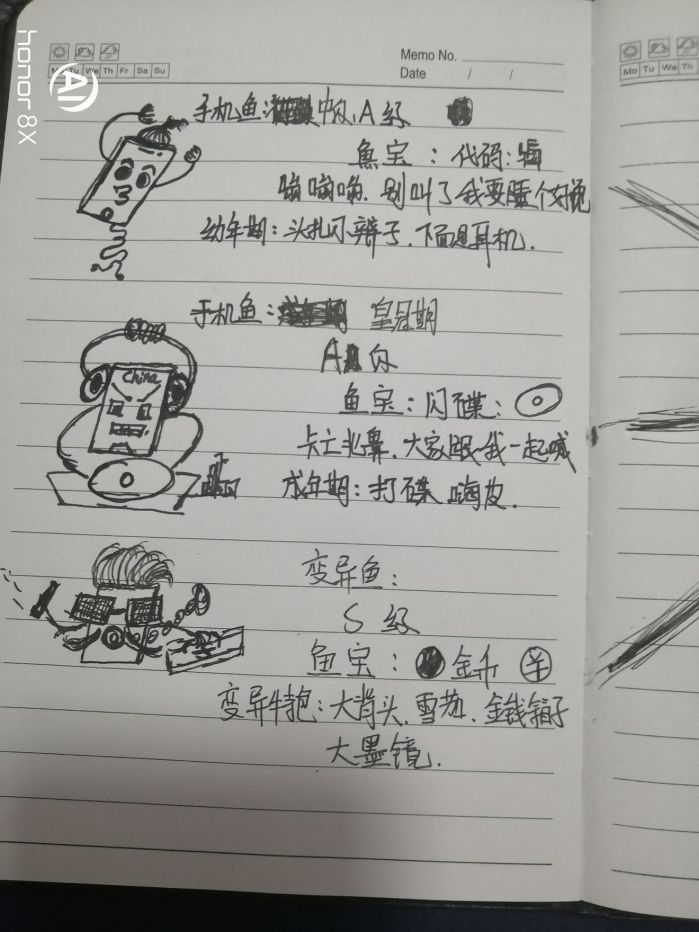 honor 8X
AI
Memo No.
Mo Tu We Th Fr Sa Su
Date / /
Mo Tu We Th
手机鱼: 中队A级
鱼宝:代码:
嗡嗡嗡.别叫了我要睡个好觉
幼年期:头扎小辫子.下面是耳机.
手机鱼: 皇冠期
A级
China
鱼宝:闪碟:
大家跟我一起喊
成年期:打碟 嗨皮.
变异鱼:
S级
鱼宝: 金币 ¥
变异特抱:大背头.雪茄.金钱箱子
大墨镜.